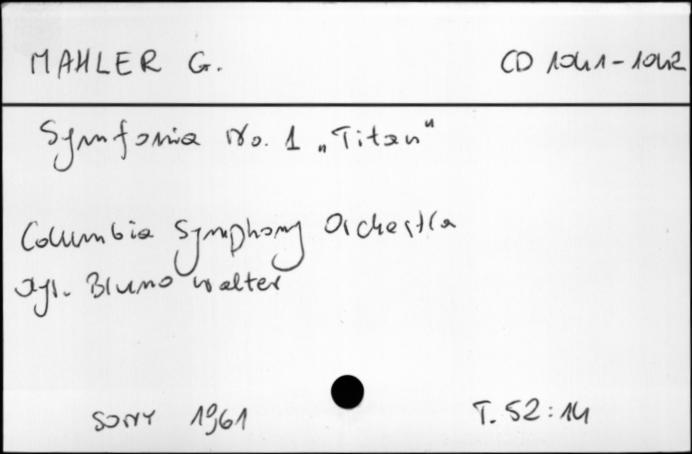 MAHLER G. CD 1041-1042
Symfonia No. 1 „Titan"
Columbia Symphony Orchestra
dyr. Bruno Walter
SONY 1961 T. 52:14